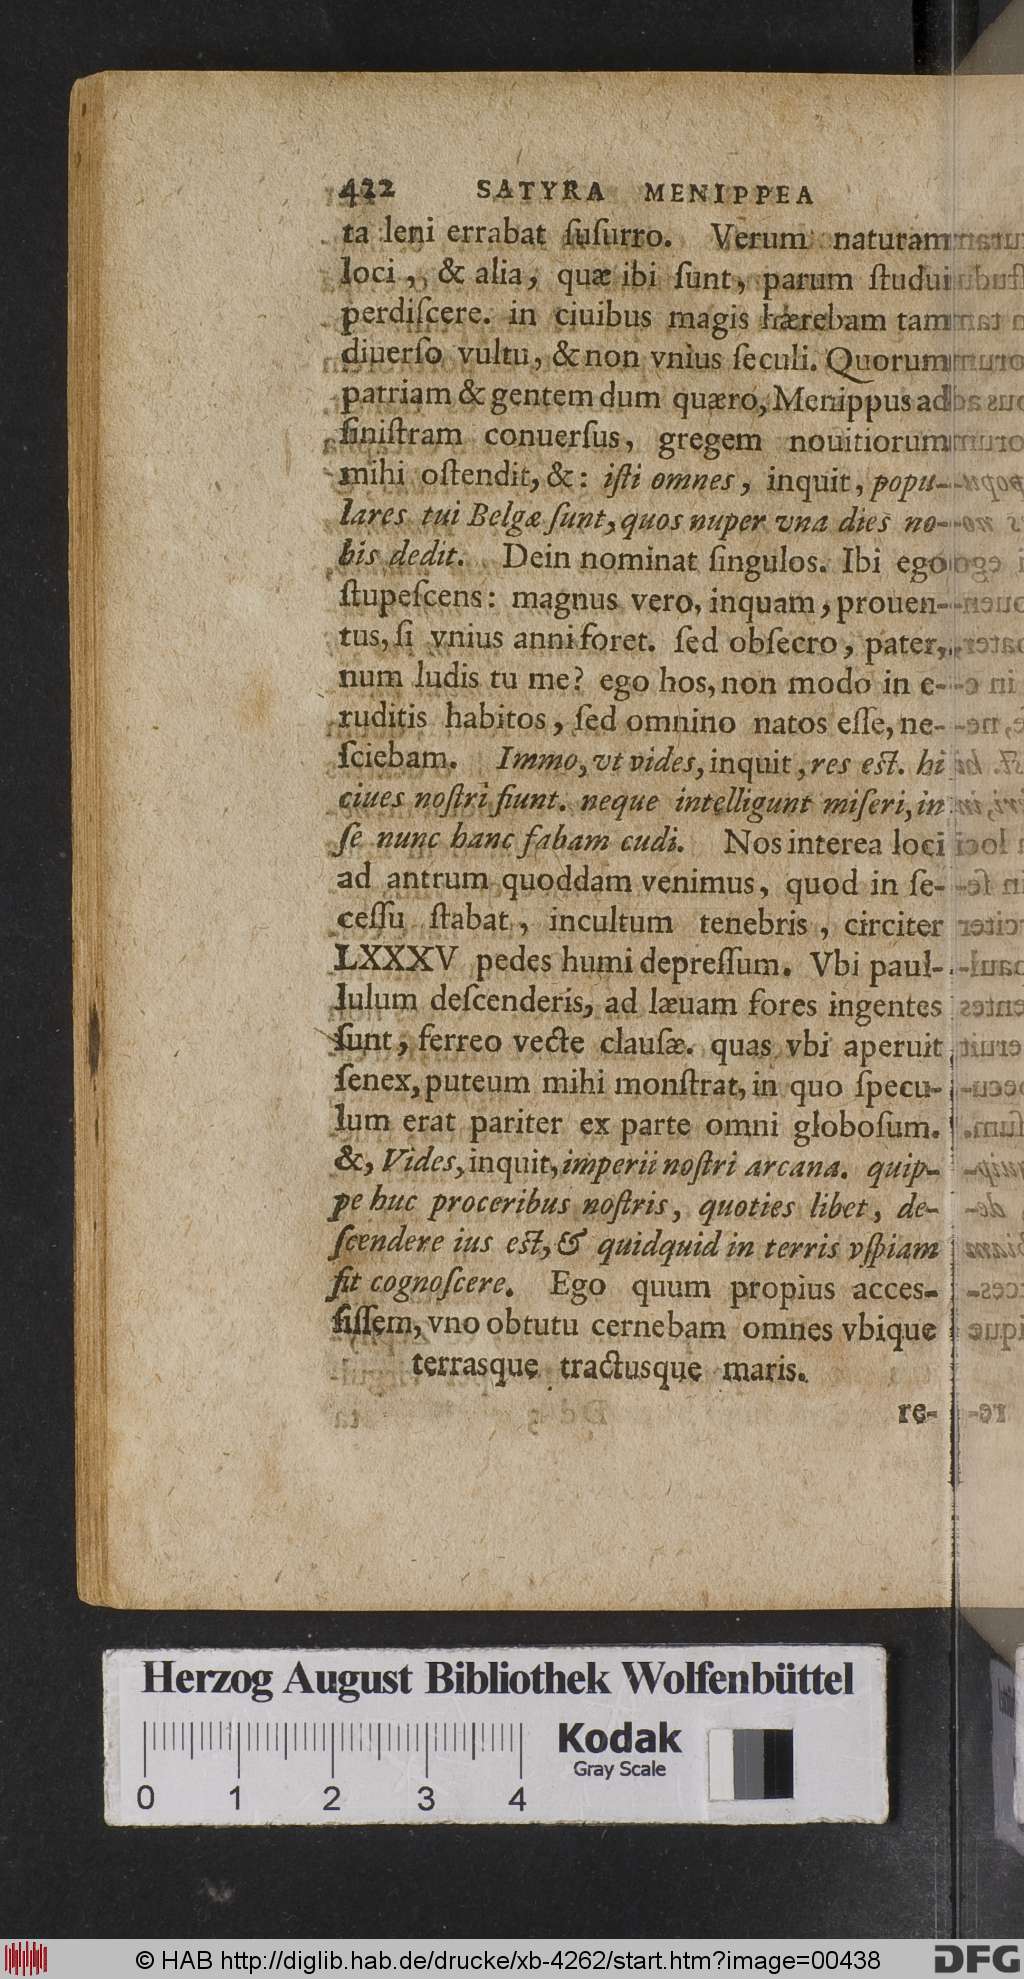 422 SATYRA MENIPPEA
ta leni errabat ſuſurro. Verum naturam
loci, & alia, quæ ibi ſunt, parum ſtudui
perdiſcere. in ciuibus magis hærebam tam
diuerſo vultu, & non vnius ſeculi. Quorum
patriam & gentem dum quæro, Menippus ad
ſiniſtram conuerſus, gregem nouitiorum
mihi oſtendit, &: iſti omnes, inquit, popu-
lares tui Belgæ ſunt, quos nuper vna dies no-
bis dedit. Dein nominat ſingulos. Ibi ego
ſtupeſcens: magnus vero, inquam, prouen-
tus, ſi vnius anni foret. ſed obſecro, pater,
num ludis tu me? ego hos, non modo in e-
ruditis habitos, ſed omnino natos eſſe, ne-
ſciebam. Immo, vt vides, inquit, res eſt. hi
ciues noſtri fiunt. neque intelligunt miſeri, in
ſe nunc hanc fabam cudi. Nos interea loci
ad antrum quoddam venimus, quod in ſe-
ceſſu ſtabat, incultum tenebris, circiter
LXXXV pedes humi depreſſum. Vbi paul-
lulum deſcenderis, ad læuam fores ingentes
ſunt, ferreo vecte clauſæ. quas vbi aperuit
ſenex, puteum mihi monſtrat, in quo ſpecu-
lum erat pariter ex parte omni globoſum.
&, Vides, inquit, imperii noſtri arcana. quip-
pe huc proceribus noſtris, quoties libet, de-
ſcendere ius eſt, & quidquid in terris vſpiam
ſit cognoſcere. Ego quum propius acces-
ſiſſem, vno obtutu cernebam omnes vbique
terrasque tractusque maris.
re-
Herzog August Bibliothek Wolfenbüttel
Kodak
Gray Scale
0 1 2 3 4
© HAB http://diglib.hab.de/drucke/xb-4262/start.htm?image=00438
DFG